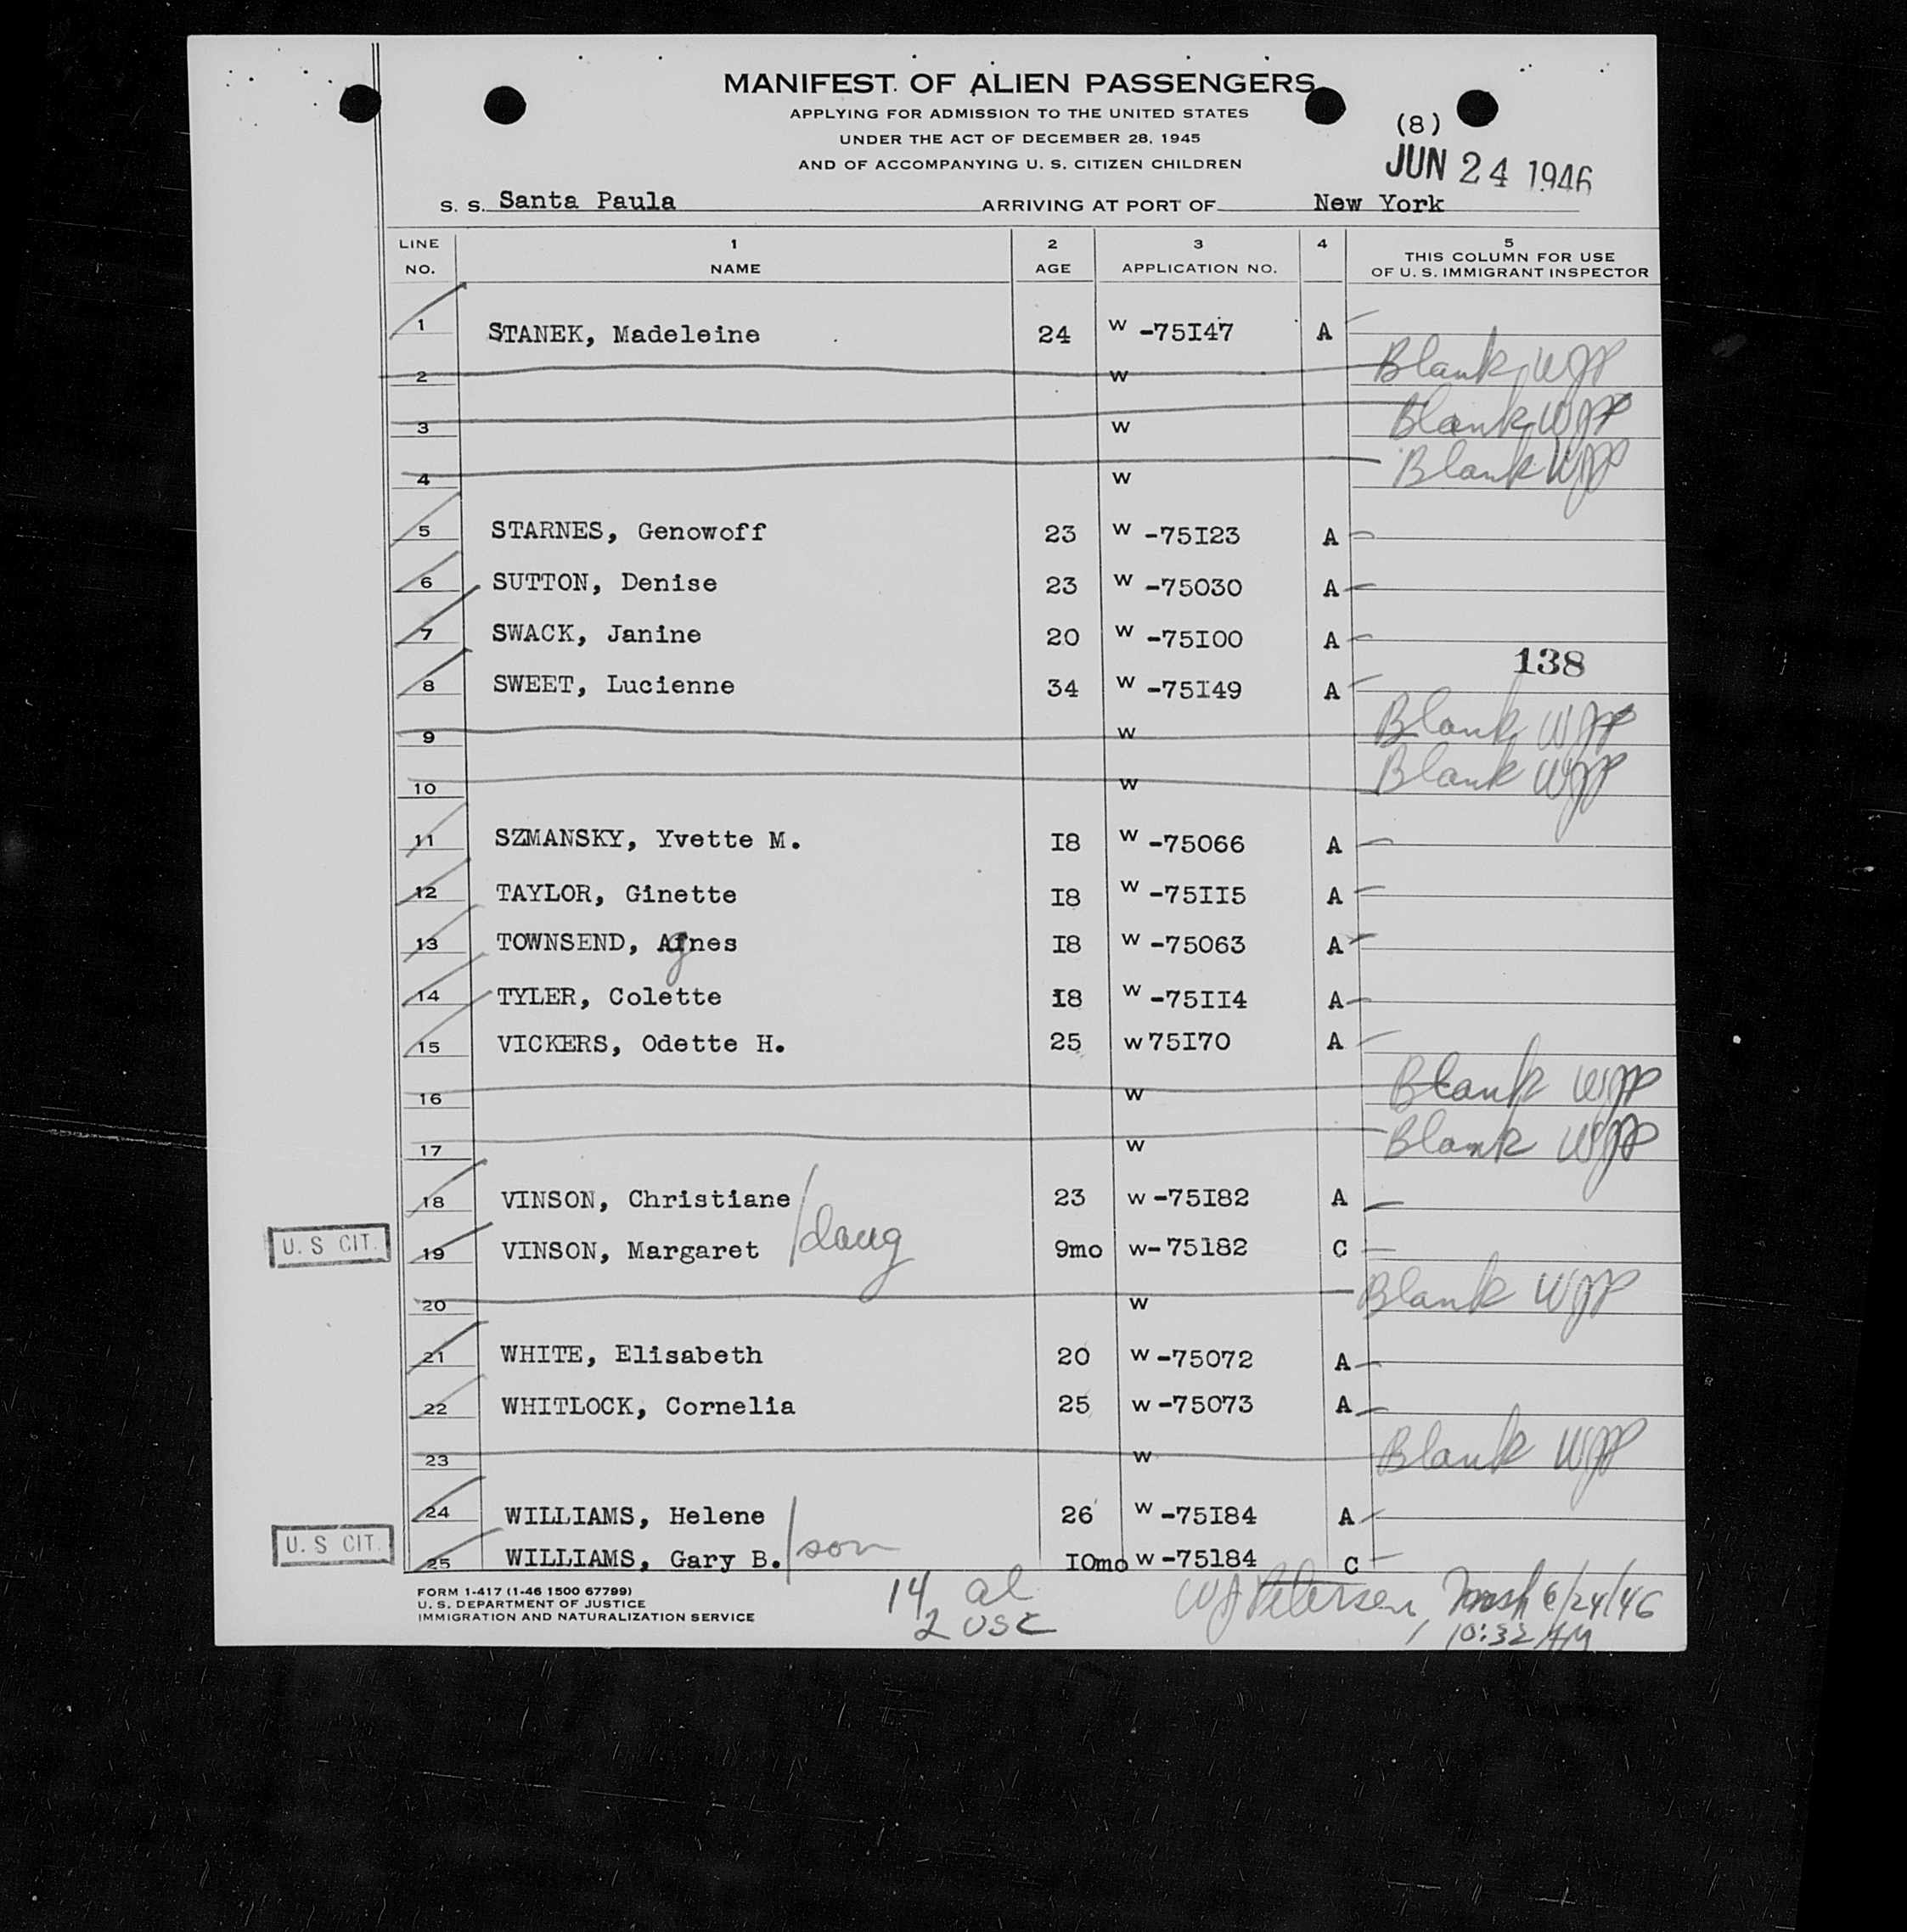 MANIFEST OF ALIEN PASSENGERS
APPLYING FOR ADMISSION TO THE UNITED STATES
UNDER THE ACT OF DECEMBER 28, 1945
AND OF ACCOMPANYING U. S. CITIZEN CHILDREN
(8)
JUN 24 1946
S. S. Santa Paula ARRIVING AT PORT OF New York
LINE NO. 1 NAME 2 AGE 3 APPLICATION NO. 4 5 THIS COLUMN FOR USE OF U. S. IMMIGRANT INSPECTOR
1 STANEK, Madeleine 24 W -75I47 A
2 W Blank WJP
3 W Blank WJP
4 W Blank WJP
5 STARNES, Genowoff 23 W -75I23 A
6 SUTTON, Denise 23 W -75030 A
7 SWACK, Janine 20 W -75I00 A
138
8 SWEET, Lucienne 34 W -75I49 A
9 W Blank WJP
10 W Blank WJP
11 SZMANSKY, Yvette M. I8 W -75066 A
12 TAYLOR, Ginette I8 W -75II5 A
13 TOWNSEND, Agnes I8 W -75063 A
14 TYLER, Colette I8 W -75II4 A
15 VICKERS, Odette H. 25 W 75I70 A
16 W Blank WJP
17 W Blank WJP
18 VINSON, Christiane 23 W -75I82 A
U. S CIT. 19 VINSON, Margaret /daug 9mo W- 75182 C
20 W Blank WJP
21 WHITE, Elisabeth 20 W -75072 A
22 WHITLOCK, Cornelia 25 W -75073 A
23 W Blank WJP
24 WILLIAMS, Helene 26 W -75I84 A
U. S CIT. 25 WILLIAMS, Gary B. /son I0mo W -75184 C
FORM 1-417 (1-46 1500 67799)
U. S. DEPARTMENT OF JUSTICE
IMMIGRATION AND NATURALIZATION SERVICE
14 al
2 USC
WJ Petersen, 6/24/46
10:32 AM